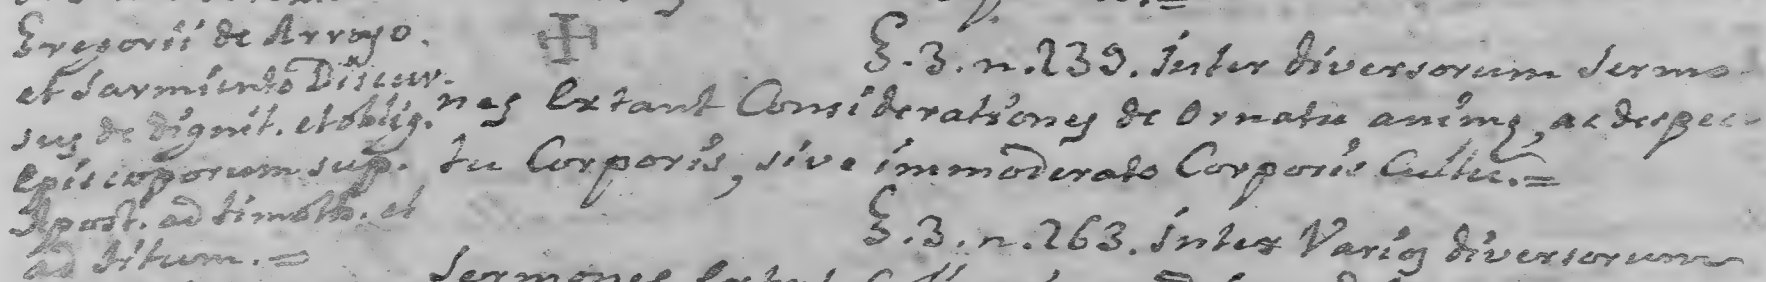 Gregorii de Arroyo.
et Sarmiento Discur-
sus de dignit. et oblig.
Episcoporum sup.
Epist. ad timoth. et
ad titum.=
E.3.n.239. inter diversorum Sermo-
nes Extant Considerationes de Ornatu animę, ac despec-
tu Corporis, sive immoderato Corporis Cultu.=
E.3.n.263. inter Varios diversorum
Sermones